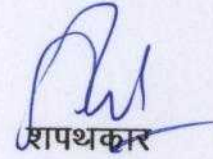 शपथकार